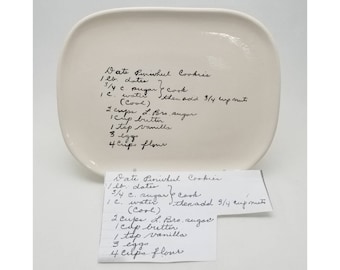 Date Pinwheel Cookies
1 lb. dates
3/4 c. sugar } cook
1 c. water then add 3/4 cup nuts
(Cool)
2 cups L Bro. sugar
1 cup butter
1 tsp vanilla
3 eggs
4 cups flour
Date Pinwheel Cookies
1 lb. dates
3/4 c. sugar } cook
1 c. water then add 3/4 cup nuts
(Cool)
2 cups L Bro. sugar
1 cup butter
1 tsp vanilla
3 eggs
4 cups flour